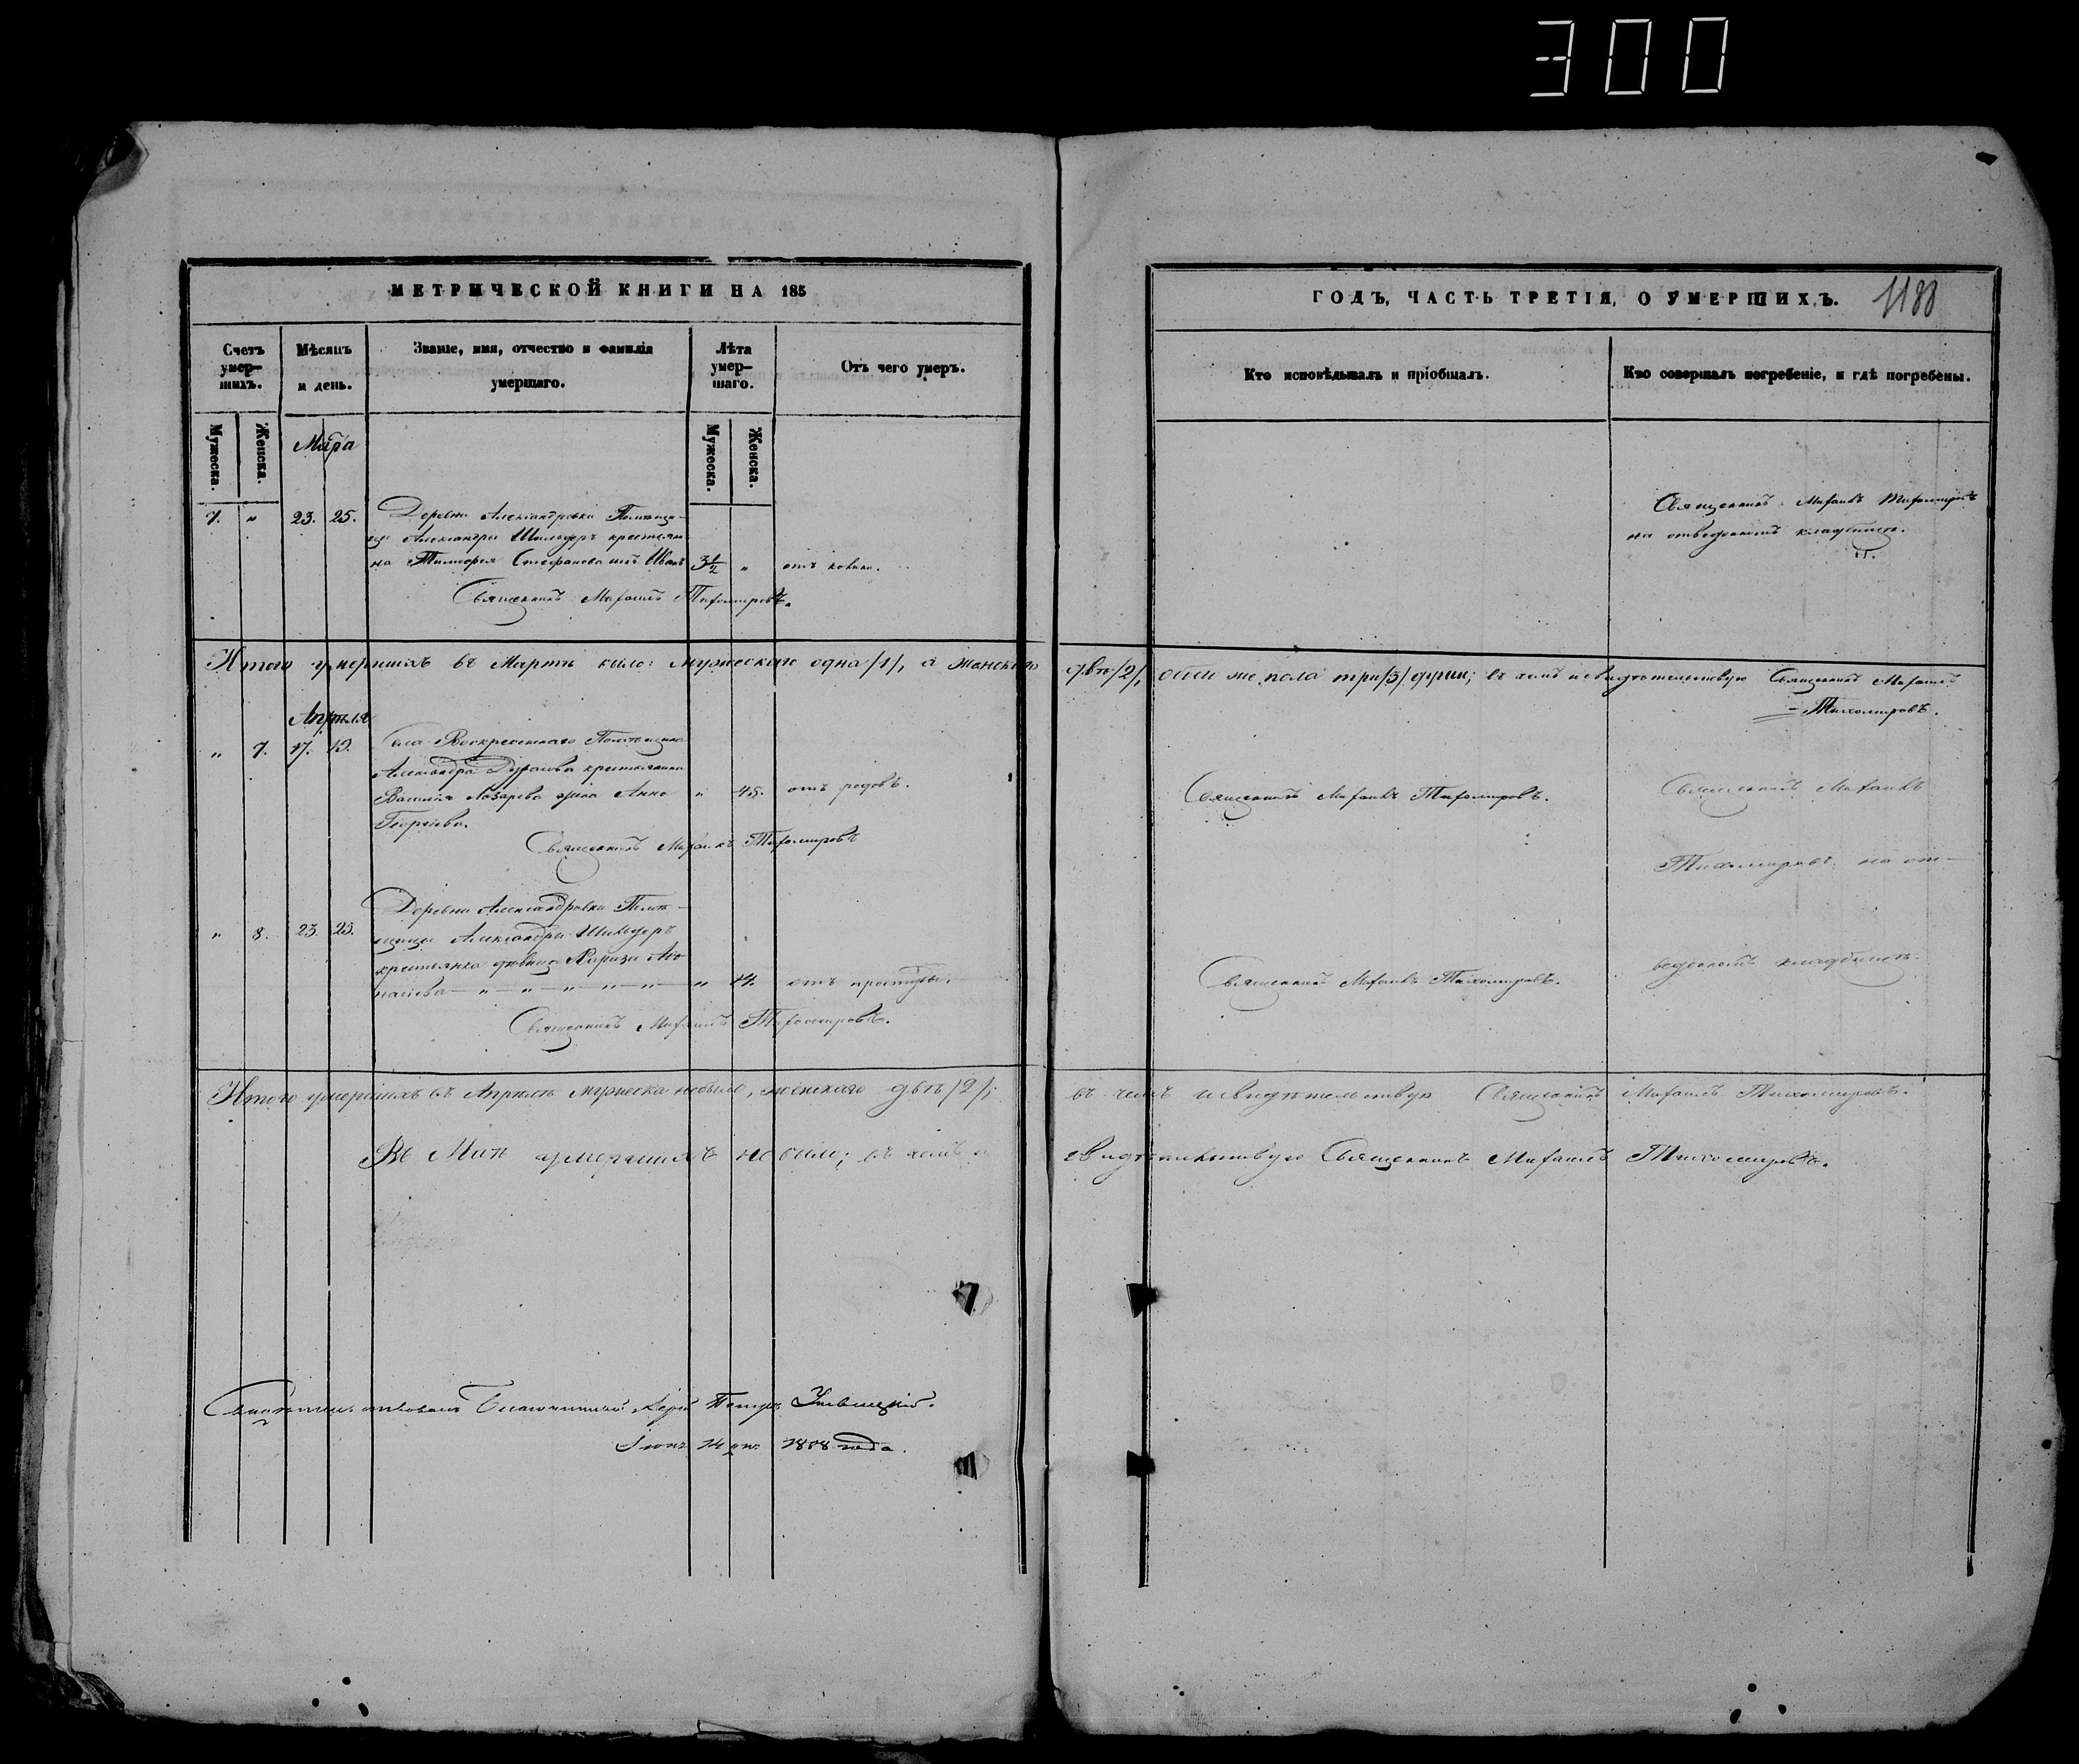 300
МЕТРИЧЕСКОЙ КНИГИ НА 185
ГОДЪ, ЧАСТЬ ТРЕТІЯ, О УМЕРШИХЪ.
1188
Счетъ умер-шихъ.
Мѣсяцъ и день.
Званіе, имя, отчество и фамилія умершаго.
Лѣта умер-шаго.
Отъ чего умеръ.
Кто исповѣдывалъ и пріобщалъ.
Кто совершалъ погребеніе, и гдѣ погребены.
Мужеска.
Женска.
Мужеска.
Женска.
Марта
7. " 23. 25. Деревни Александровки Помѣщи-
цы Александры Шильдеръ крестьян-
на Тимофея Стефанова сынъ Иванъ 3 1/2 " отъ
Священникъ Михаилъ Тихомировъ.
Священникъ Михаилъ Тихомировъ
на отведенномъ кладбищѣ.
Итого умершихъ въ Мартѣ было: мужескаго одна /1/, а женскаго двѣ /2/, обоего же пола три /3/ души; въ чемъ и свидѣтельствую Священникъ Михаилъ
Тихомировъ.
Апрѣля
" 7. 17. 19. Села Воскресенскаго Помѣщика
Александра Дурасова крестьянина
Василія Лазарева жена Анна " 45. отъ родовъ.
Георгіева.
Священникъ Михаилъ Тихомировъ
Священникъ Михаилъ Тихомировъ.
Священникъ Михаилъ
Тихомировъ на от-
" 8. 23. 25. Деревни Александровки Помѣ-
щицы Александры Шильдеръ
крестьянка дѣвица
" отъ простуды.
Священникъ Михаилъ Тихомировъ.
Священникъ Михаилъ Тихомировъ.
веденномъ кладбищѣ.
Итого умершихъ въ Апрѣлѣ мужеска небыло, женскаго двѣ /2/; въ чемъ и свидѣтельствую Священникъ Михаилъ Тихомировъ.
Въ Маѣ умершихъ не было; въ чемъ и свидѣтельствую Священникъ Михаилъ Тихомировъ.
Благочинный Іерей Петръ
14 дня года.